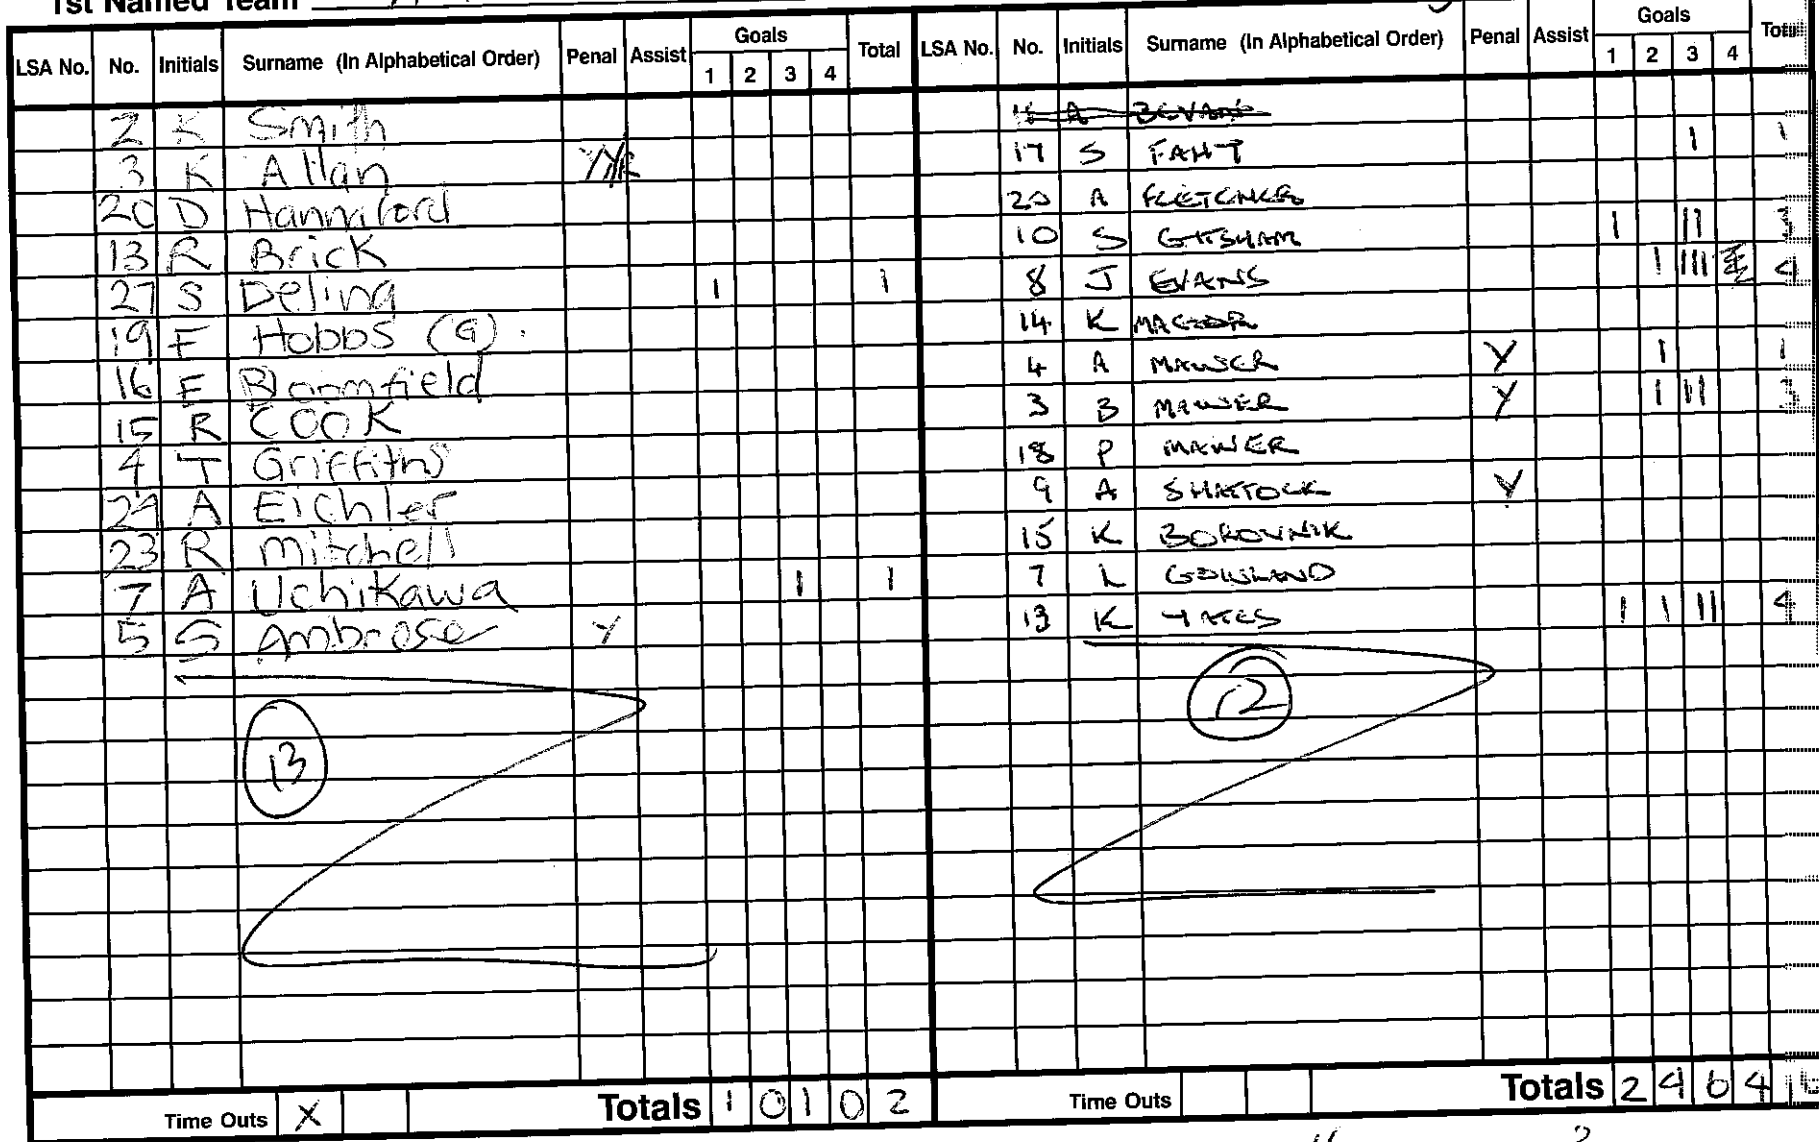 1st Named Team
LSA No. No. Initials Surname (In Alphabetical Order) Penal Assist Goals 1 2 3 4 Total
2 K Smith
3 K Allan
20 D Hannaford
13 R Brick
27 S Delina 1 1
19 F Hobbs (G).
16 E Bloomfield
15 R COOK
4 T Griffiths
A Eichler
23 R Mitchell
7 A Uchikawa 1 1
5 S Ambrose Y
13
Time Outs X Totals 1 0 1 0 2
LSA No. No. Initials Surname (In Alphabetical Order) Penal Assist Goals 1 2 3 4
A BEVANS
17 S FAHT 1 1
20 A FLETCHER
10 S GITSHAM 1 11 3
8 J EVANS 1 111 4
14 K
4 A MAWSER Y 1 1
3 B MAWER Y 1 11 3
18 P MAWER
9 A SHATTOCK Y
15 K BOROVNIK
7 L GOWLAND
13 K YATES 1 1 11 4
12
Time Outs Totals 2 4 6 4